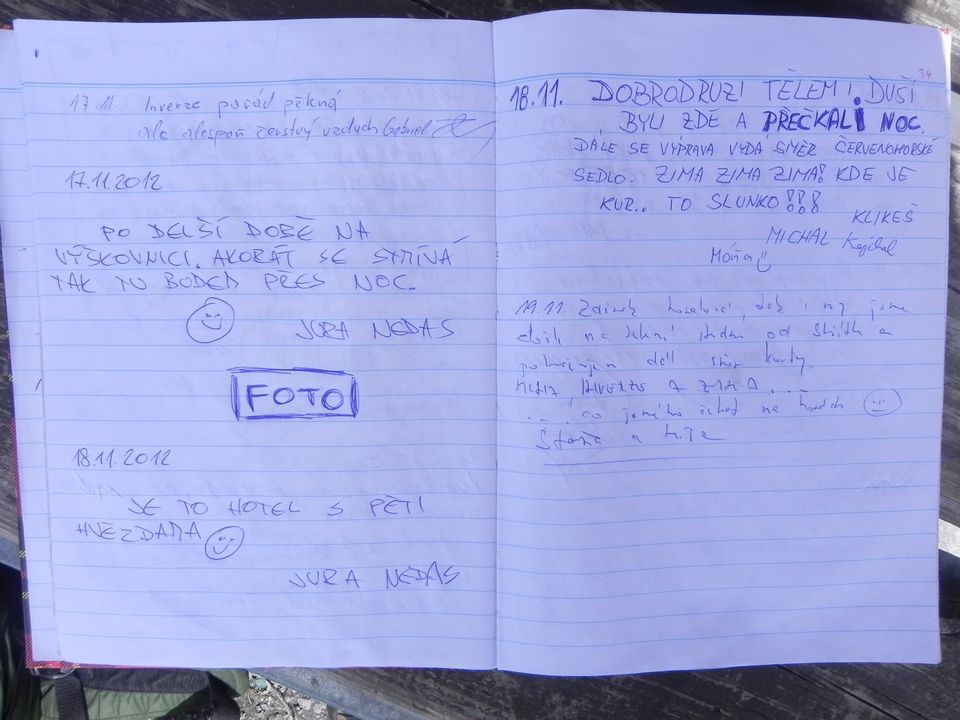 17.11. Inverze pořád pěkná
ale alespoň čerstvý vzduch Gabriel
17.11.2012
PO DELŠÍ DOBĚ NA
VÝŠKOVNICI. AKORÁT SE STMÍVÁ
TAK TU BUDEM PŘES NOC.
JURA NEDAS
FOTO
18.11.2012
JE TO HOTEL S PĚTI
HVEZDAMA
JURA NEDAS
34
18.11. DOBRODRUZI TĚLEM I DUŠÍ
BYLI ZDE A PŘEČKALI NOC.
DÁLE SE VÝPRAVA VYDÁ SMĚR ČERVENOHORSKÉ
SEDLO. ZIMA ZIMA ZIMA! KDE JE
KUR.. TO SLUNKO!!!
KLIKEŠ
MICHAL
Móňa
19.11. tak i my jsme
na od a
dál směr
MLHA, A ZIMA...
... co jiného čekat na horách
a